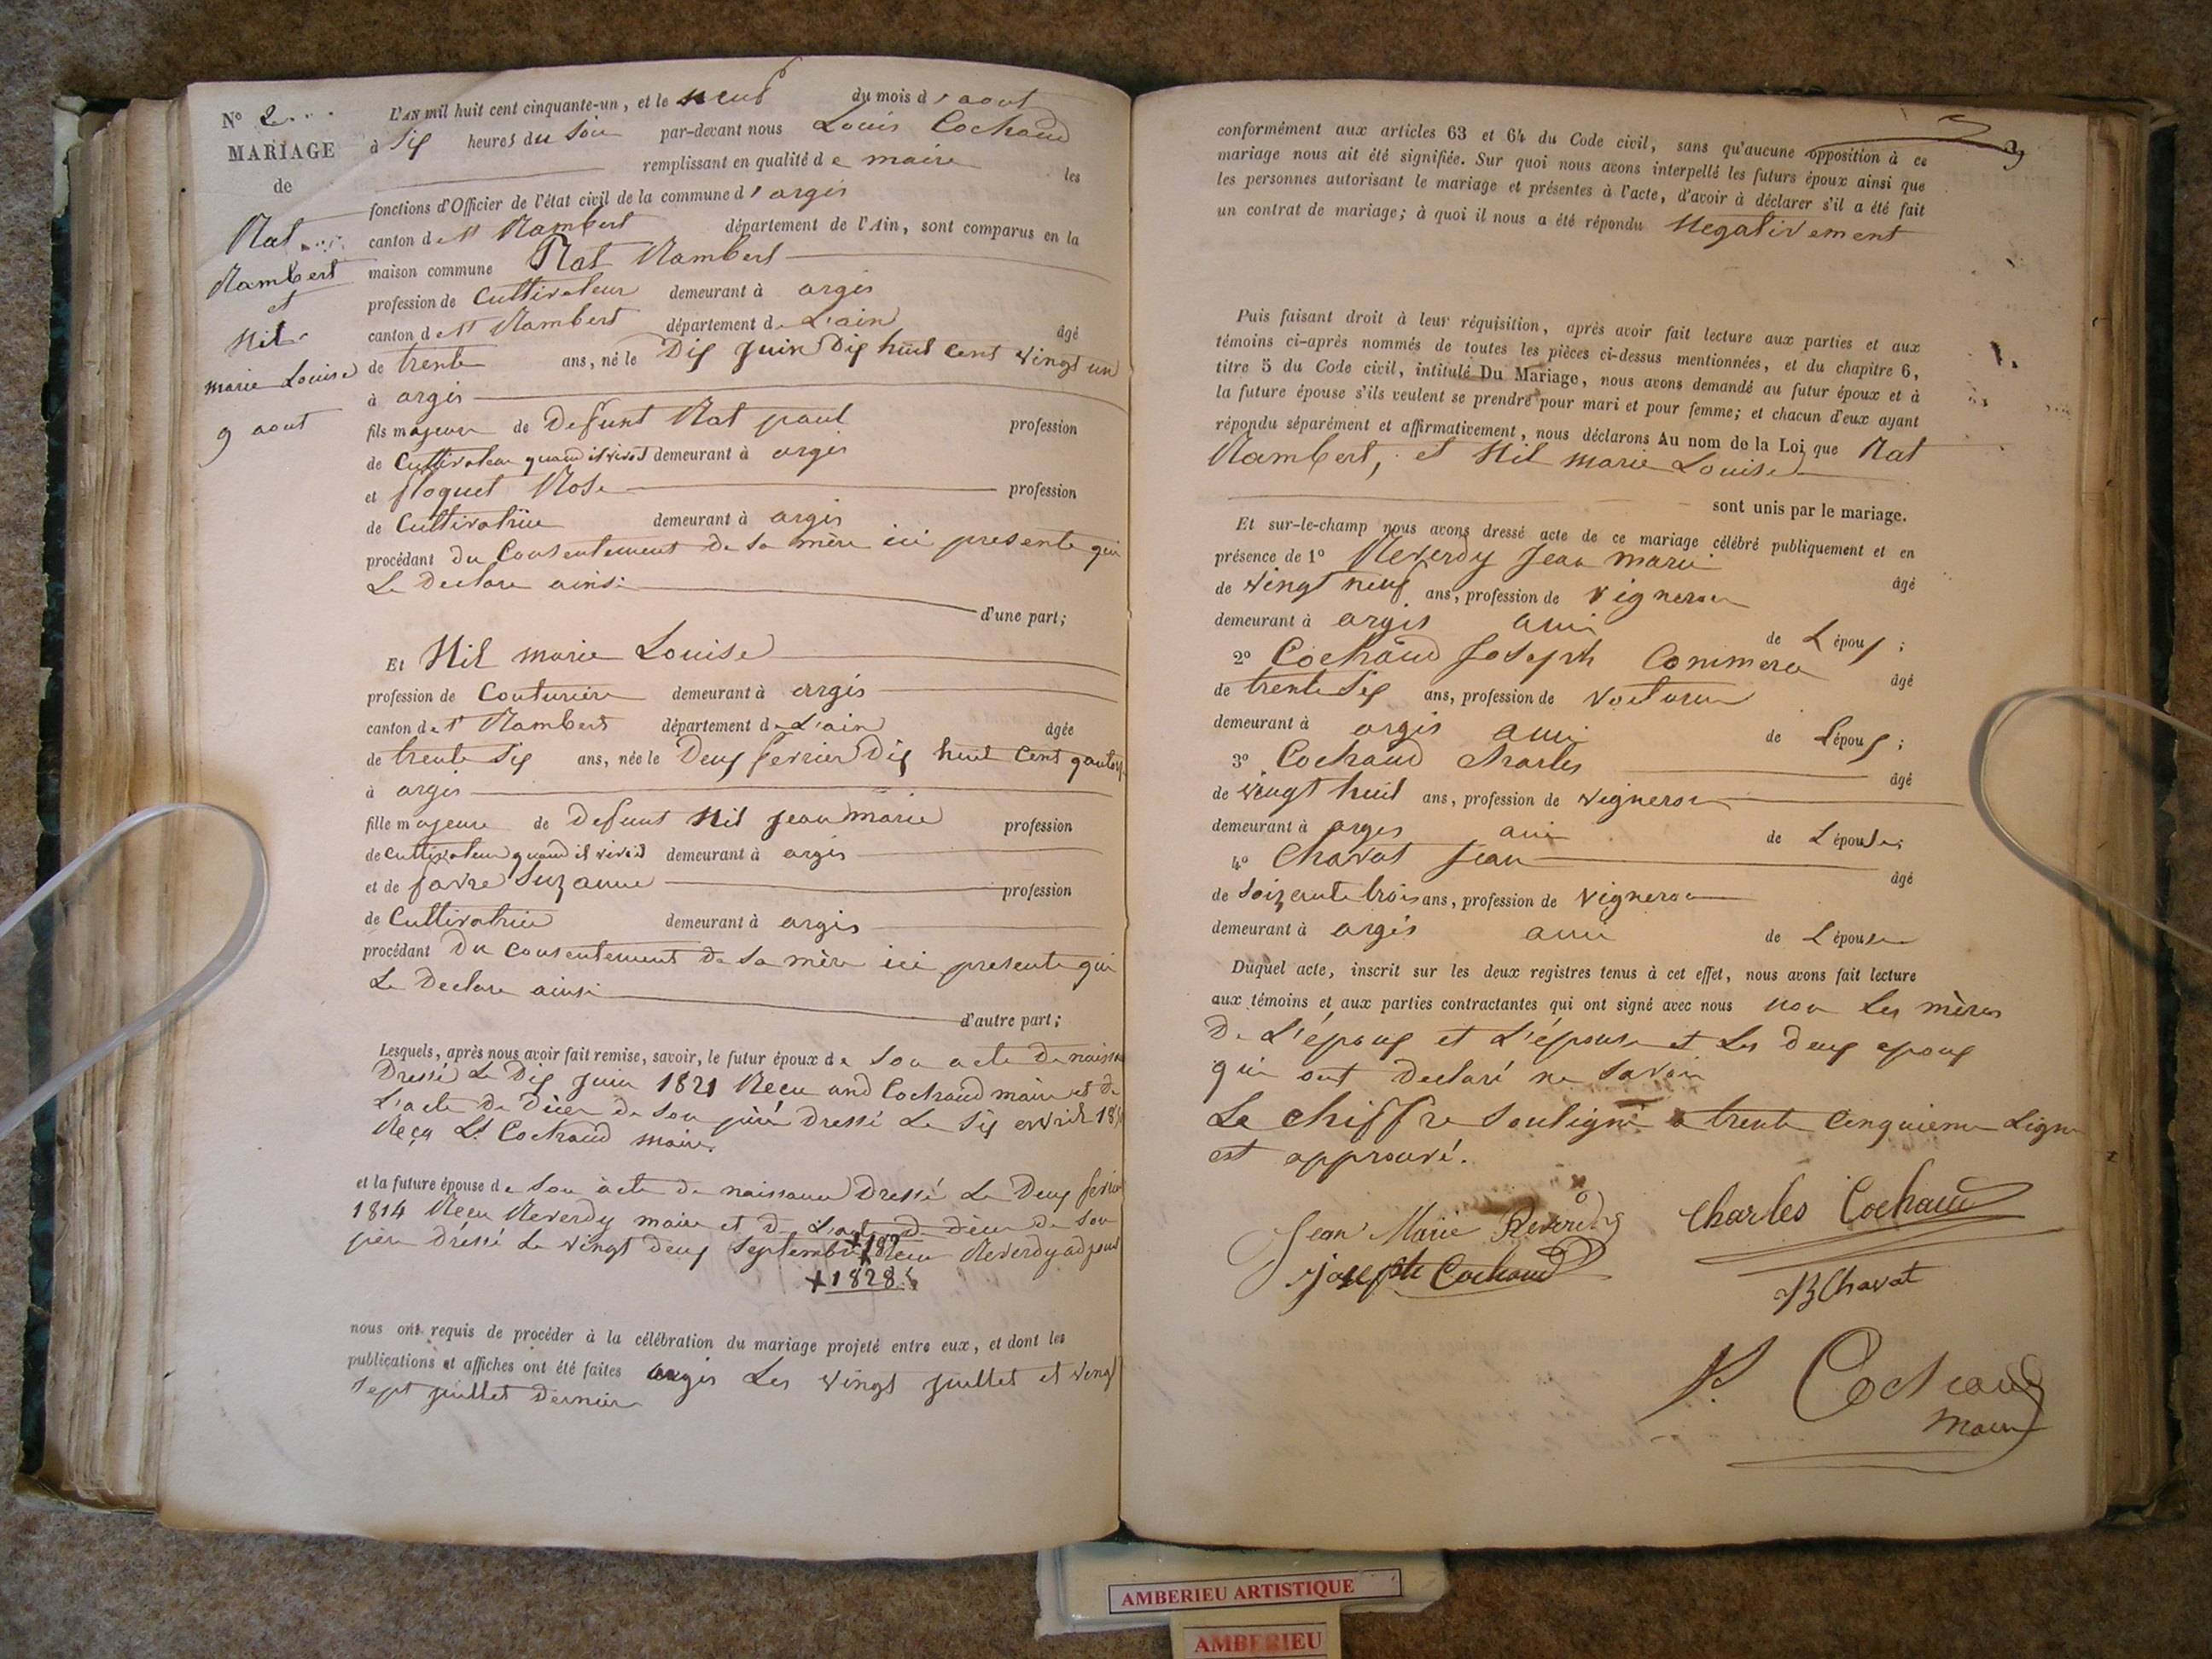 N° 2
MARIAGE
de
Rat
Rambert
et
Nil
marie Louise
9 aout
L'AN mil huit cent cinquante-un, et le neuf du mois d'aout
à Six heures du Soir par-devant nous Louis Cochaud
remplissant en qualité de maire les
fonctions d'Officier de l'état civil de la commune d'argis
canton de St Rambert département de l'Ain, sont comparus en la
maison commune Rat Rambert
profession de Cultivateur demeurant à argis
canton de St Rambert département de L'ain âgé
de trente ans, né le Dix Juin Dix huit cent vingt un
à argis
fils majeur de Defunt Rat paul profession
de Cultivateur quand il vivait demeurant à argis
et floquet Rose profession
de Cultivatrice demeurant à argis
procédant du Consentement de Sa mère ici presente qui
Le Declare ainsi
d'une part;
Et Nil marie Louise
profession de Couturière demeurant à argis
canton de St Rambert département de L'ain âgée
de trente Six ans, née le Deux fevrier Dix huit Cent
à argis
fille majeure de Defunt Nil Jean marie profession
de cultivateur quand il vivait demeurant à argis
et de favre Suzanne profession
de Cultivatrice demeurant à argis
procédant Du Consentement de Sa mère ici presente qui
Le Declare ainsi
d'autre part;
Lesquels, après nous avoir fait remise, savoir, le futur époux de Son acte De
Dressé Le Dix Juin 1821 Recu Cochaud maire et de
L'acte De Décès de Son père Dressé Le Six
Reçu Lt Cochaud maire.
et la future épouse de Son acte de naissance Dressé Le Deux
1814 Recu Reverdy maire et de L'acte de décès de Son
père dréssé Le vingt deux Septembre + Recu Reverdy
+ 1828
nous ont requis de procéder à la célébration du mariage projeté entre eux, et dont les
publications et affiches ont été faites argis Les vingt Juillet et vingt
Sept Juillet Dernier
conformément aux articles 63 et 64 du Code civil, sans qu'aucune opposition à ce
mariage nous ait été signifiée. Sur quoi nous avons interpellé les futurs époux ainsi que
les personnes autorisant le mariage et présentes à l'acte, d'avoir à déclarer s'il a été fait
un contrat de mariage; à quoi il nous a été répondu Negativement
Puis faisant droit à leur réquisition, après avoir fait lecture aux parties et aux
témoins ci-après nommés de toutes les pièces ci-dessus mentionnées, et du chapitre 6,
titre 5 du Code civil, intitulé Du Mariage, nous avons demandé au futur époux et à
la future épouse s'ils veulent se prendre pour mari et pour femme; et chacun d'eux ayant
répondu séparément et affirmativement, nous déclarons Au nom de la Loi que Rat
Rambert, et Nil marie Louise
sont unis par le mariage.
Et sur-le-champ nous avons dressé acte de ce mariage célébré publiquement et en
présence de 1° Reverdy Jean marie âgé
de vingt neuf ans, profession de vigneron
demeurant à argis ami de L'époux;
2° Cochaud Joseph âgé
de trente Six ans, profession de voiturier
demeurant à argis ami de L'époux;
3° Cochaud Charles âgé
de vingt huit ans, profession de vigneron
demeurant à argis ami de L'épouse;
4° Chavat Jean âgé
de Soixante trois ans, profession de vigneron
demeurant à argis ami de L'épouse
Duquel acte, inscrit sur les deux registres tenus à cet effet, nous avons fait lecture
aux témoins et aux parties contractantes qui ont signé avec nous non les mères
De L'époux et L'épouse et les deux epoux
qui ont declaré ne Savoir
Le chiffre Souligné a trente Cinquieme Ligne
est approuvé.
Jean Marie Reverdy Charles Cochaud
Joseph Cochaud
Chavat
Cochaud
maire
AMBERIEU ARTISTIQUE
AMBERIEU